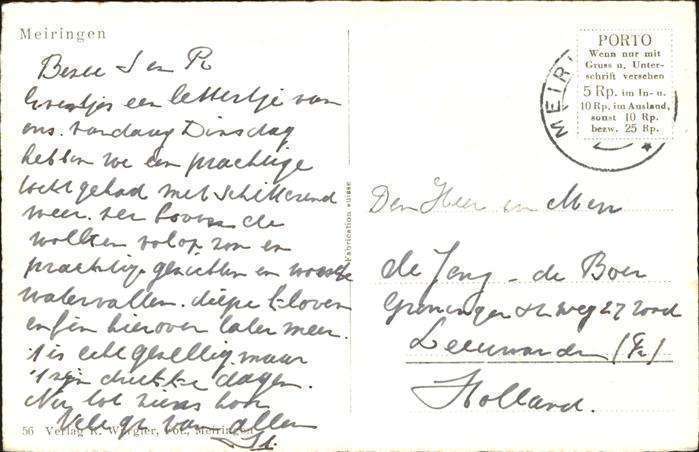 Meiringen
Beste J en R
een lettertje van
ons. Vandaag Dinsdag
hebben we een prachtige
tocht gehad met schitterend
weer. ver boven de
wolken volop zon en
prachtige gezichten en woeste
watervallen. diepe kloven
enfin hierover later meer.
't is echt gezellig maar
't zijn drukke dagen.
Nu tot ziens hoor
Vele gr van allen
56 Verlag R. Würgler, Fot., Meiringen
Fabrication suisse
MEIRI
PORTO
Wenn nur mit
Gruss u. Unter-
schrift versehen
5 Rp. im In- u.
10 Rp. im Ausland,
sonst 10 Rp.
bezw. 25 Rp.
Den Heer en Mevr
de Jong - de Boer
Groninger str weg 27 rood
Leeuwarden (Fr)
Holland.